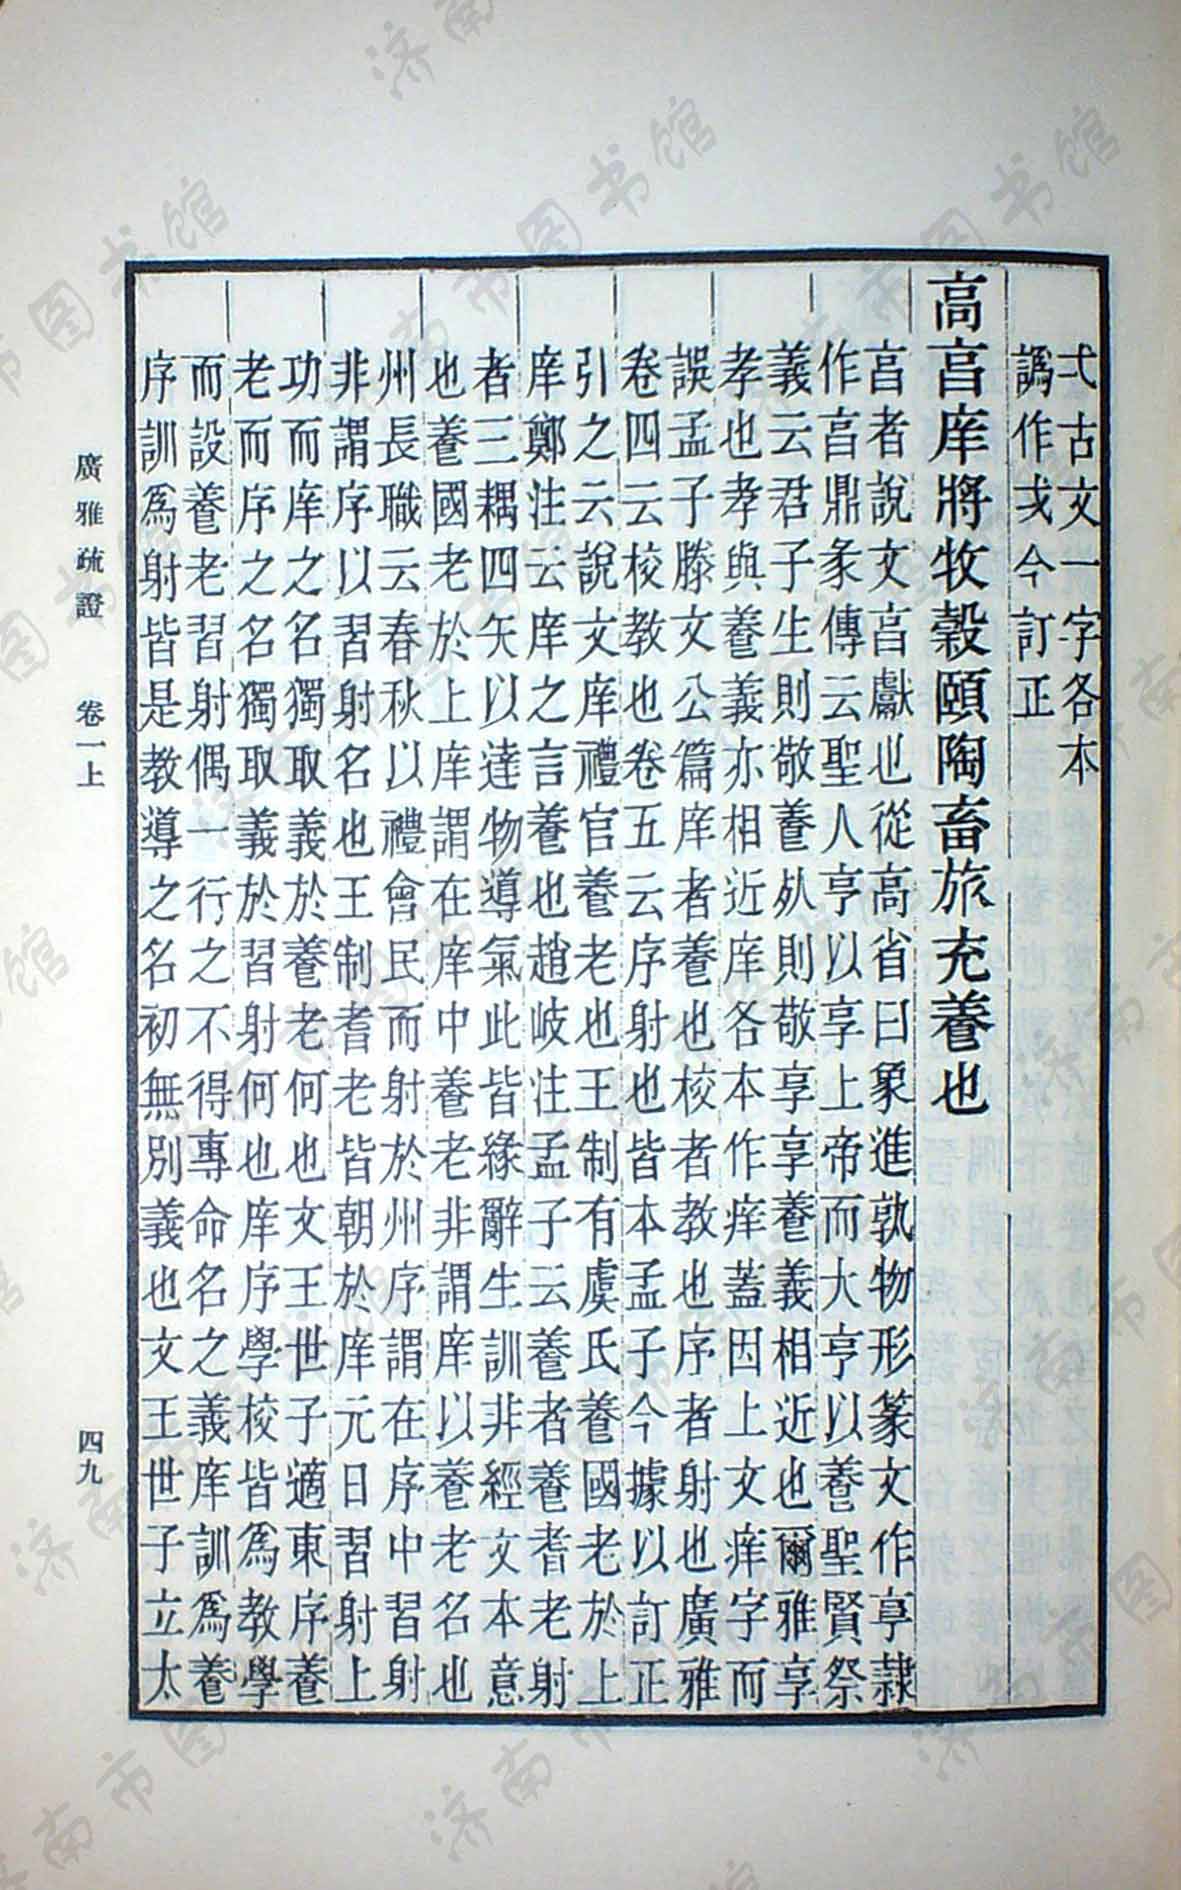 弌古文一字各本
譌作戈今訂正
高亯庠將牧穀頤陶畜旅充養也
亯者說文亯獻也從高省曰象進孰物形篆文作亨隸
作亯鼎彖傳云聖人亨以享上帝而大亨以養聖賢祭
義云君子生則敬養死則敬享享養義相近也爾雅享
孝也孝與養義亦相近庠各本作痒蓋因上文痒字而
誤孟子滕文公篇庠者養也校者教也序者射也廣雅
卷四云校教也卷五云序射也皆本孟子今據以訂正
引之云說文庠禮官養老也王制有虞氏養國老於上
庠鄭注云庠之言養也趙岐注孟子云養者養耆老射
者三耦四矢以達物導氣此皆緣辭生訓非經文本意
也養國老於上庠謂在庠中養老非謂庠以養老名也
州長職云春秋以禮會民而射於州序謂在序中習射
非謂序以習射名也王制耆老皆朝於庠元日習射上
功而庠之名獨取義於養老何也文王世子適東序養
老而序之名獨取義於習射何也庠序學校皆爲教學
而設養老習射偶一行之不得專命名之義庠訓爲養
序訓爲射皆是教導之名初無別義也文王世子立太
廣雅疏證 卷一上
四九
济南市图书馆